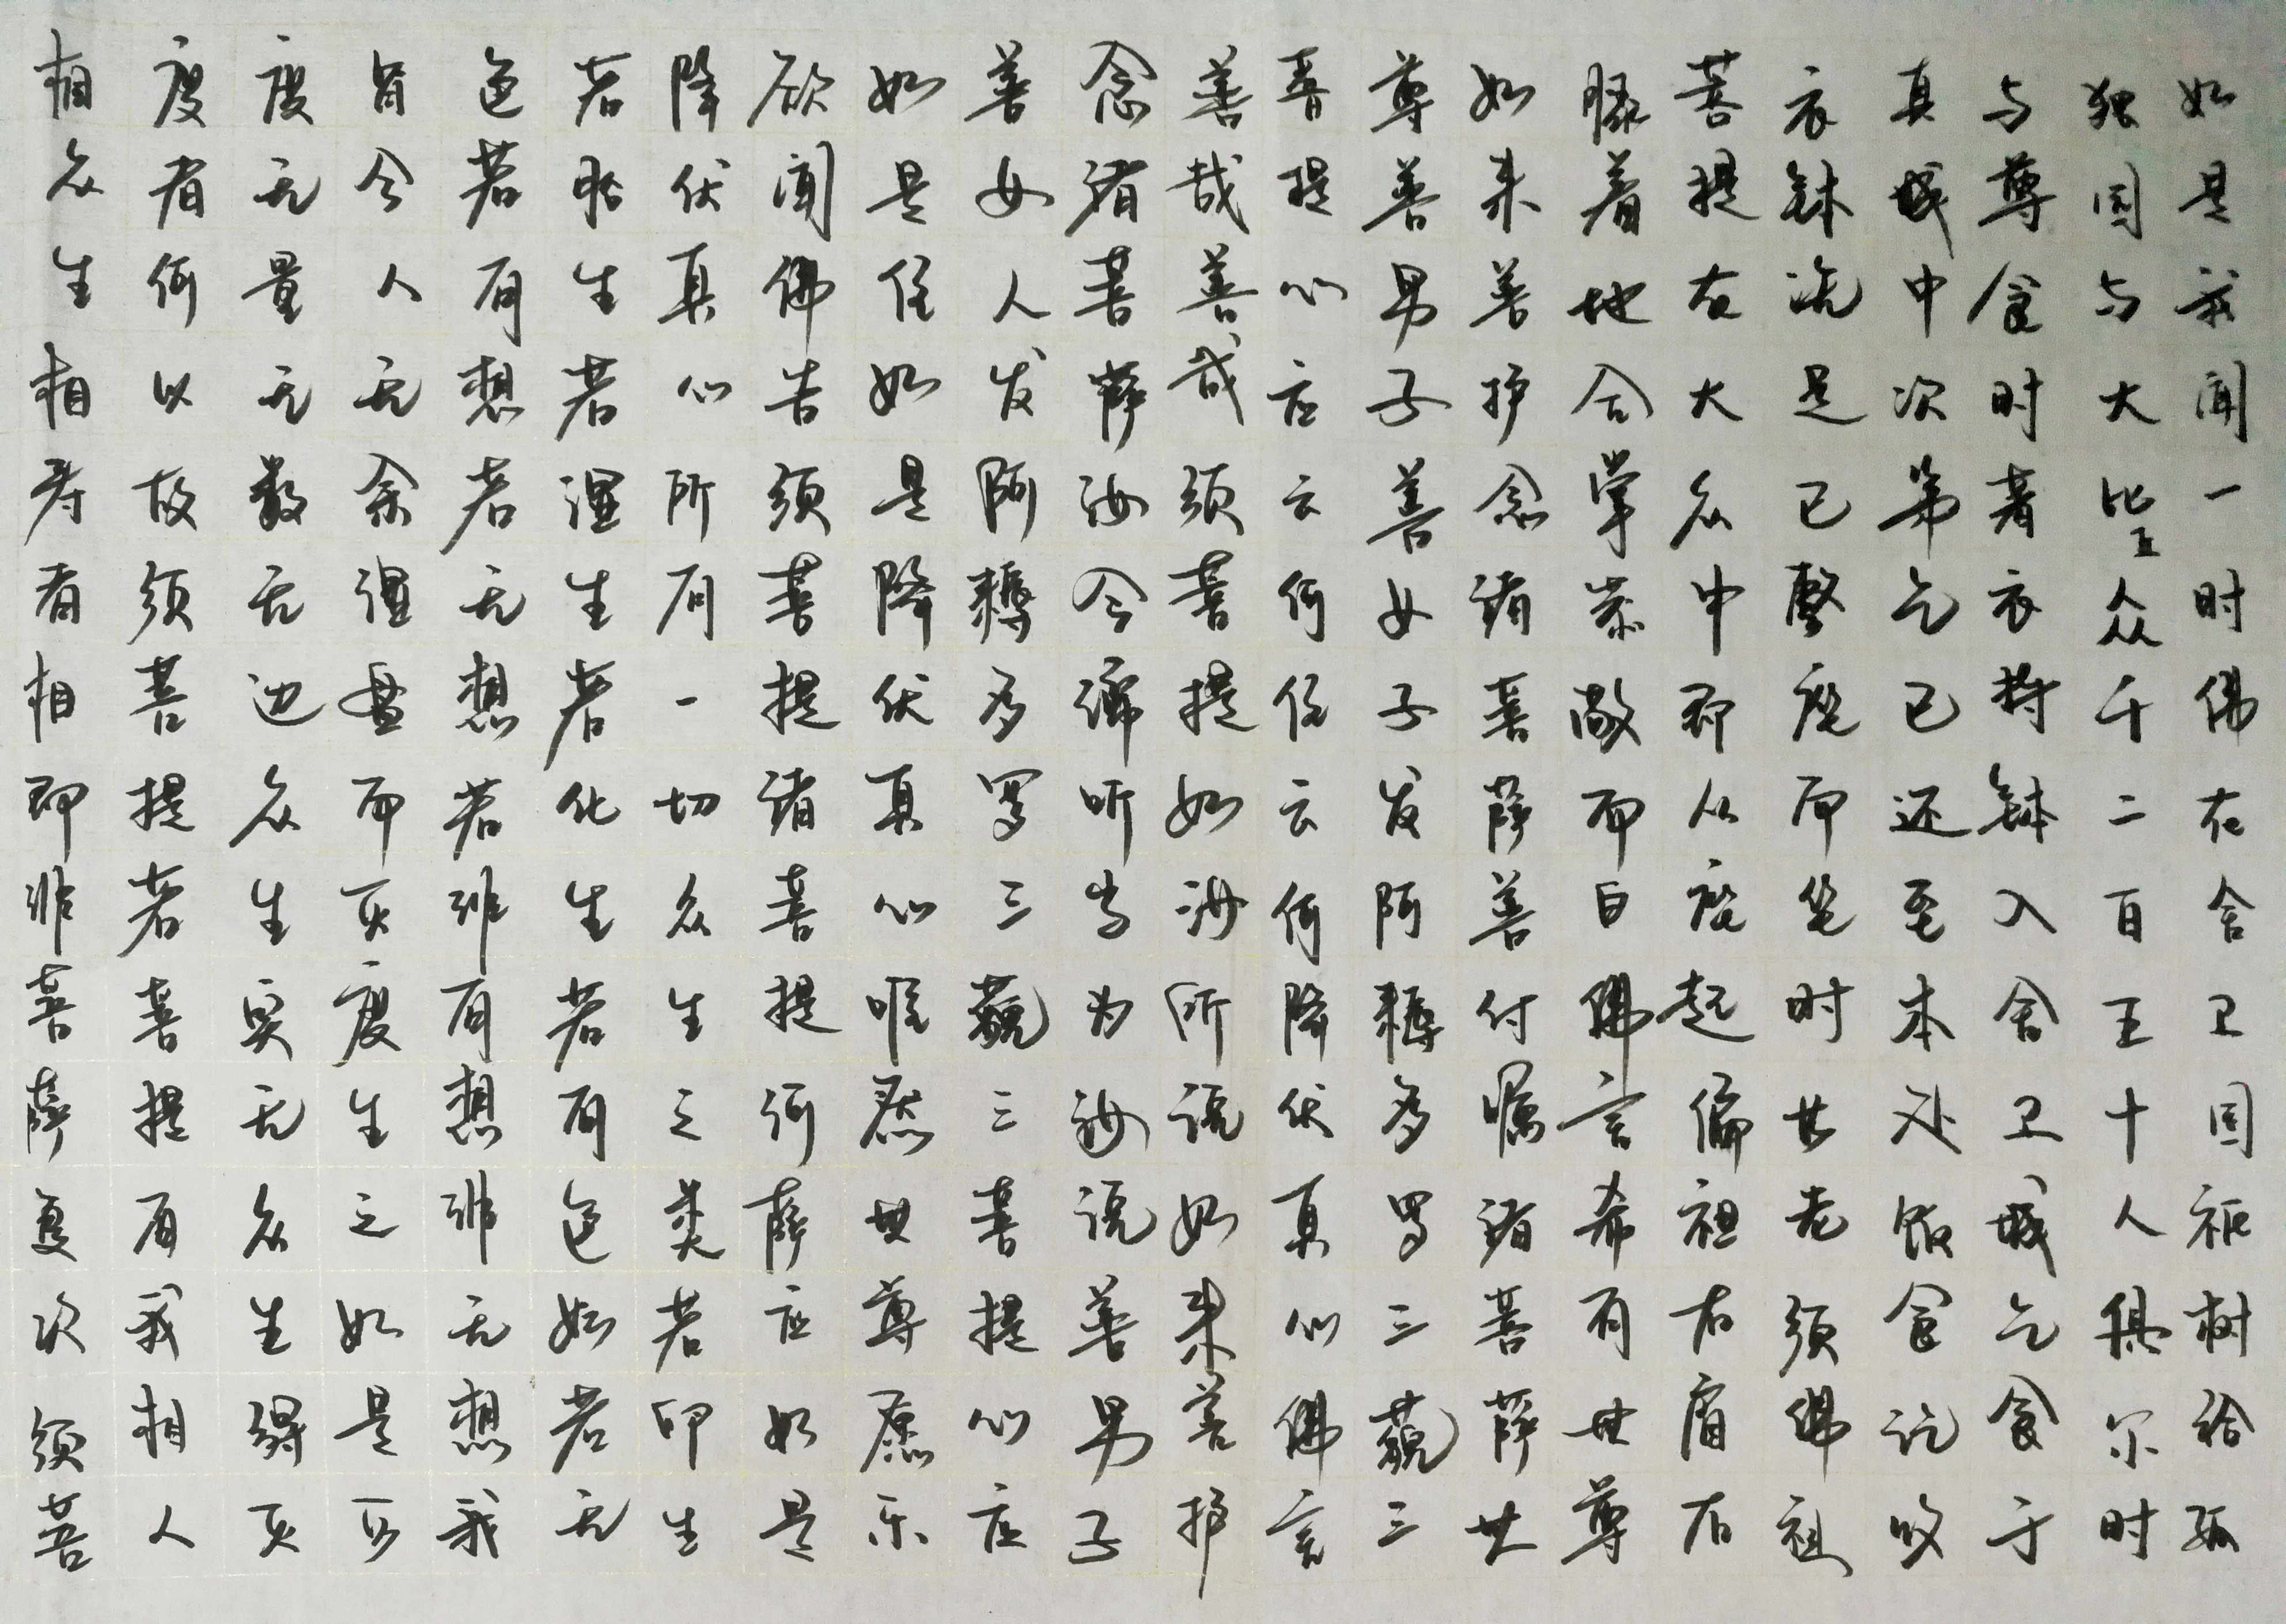 如是我闻一时佛在舍卫国祇树给孤
独园与大比丘众千二百五十人俱尔时
与尊食时著衣持钵入舍卫城乞食于
其城中次第乞已还至本处饭食讫收
衣钵洗足已敷座而坐时长老须佛祖
菩提在大众中即从座起偏袒右肩右
膝着地合掌恭敬而白佛言希有世尊
如来善护念诸菩萨善付嘱诸菩萨世
尊善男子善女子发阿耨多罗三藐三
菩提心应云何住云何降伏其心佛言
善哉善哉须菩提如汝所说如来善护
念诸菩萨汝今谛听当为汝说善男子
善女人发阿耨多罗三藐三菩提心应
如是住如是降伏其心唯然世尊愿乐
欲闻佛告须菩提诸菩提何萨应如是
降伏其心所有一切众生之类若卵生
若胎生若湿生若化生若有色如若无
色若有想若无想若非有想非无想我
皆令人无余涅盘而灭度生之如是灭
度无量无数无边众生实无众生得灭
度者何以故须菩提若菩提有我相人
相众生相寿者相即非菩萨复次须菩